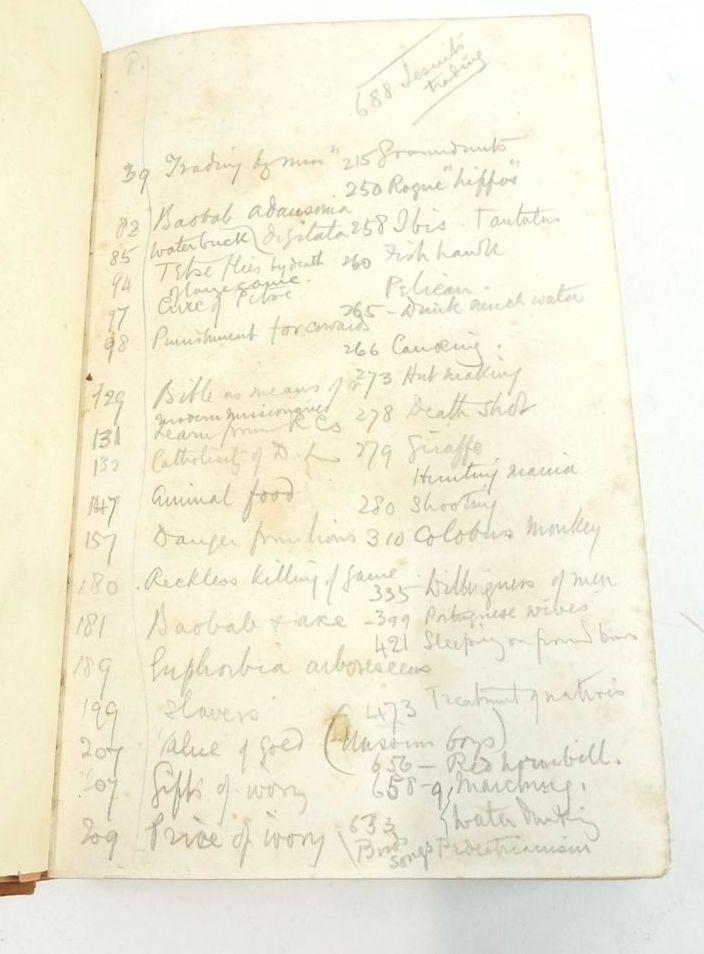 P.
688 Jesuits
trading
39 Trading by men"
82 Baobab adansonia
85 Waterbuck digitata
94 Tetse flies by death
of large game.
97 Cure of Tetse
98 Punishment for cowards
129 Bible as means of
modern missionaries
131 learn from R Cs
132 Catholicity of D. L
147 Animal food
157 Danger from lions
180 Reckless killing of game
181 Baobab & axe
189 Euphorbia arborescens
199 Slavers
207 Value of gold
207 Gifts of ivory
209 Price of ivory
215 Groundnuts
250 Rogue "hippos"
258 Ibis. Tantalus
260 Fish hawk
Pelican.
265 - Drink much water
266 Canoeing.
273 Hut making
278 Death shot
279 Giraffe
Hunting mania
280 Shooting
310 Colobus Monkey
335 Willingness of men
399 Portuguese wives
421 Sleeping on ground
473 Treatment of natives
(boys)
656 - Red hornbill.
658-9, Marching.
Water drinking
Pedestrianism
633
Birds
songs